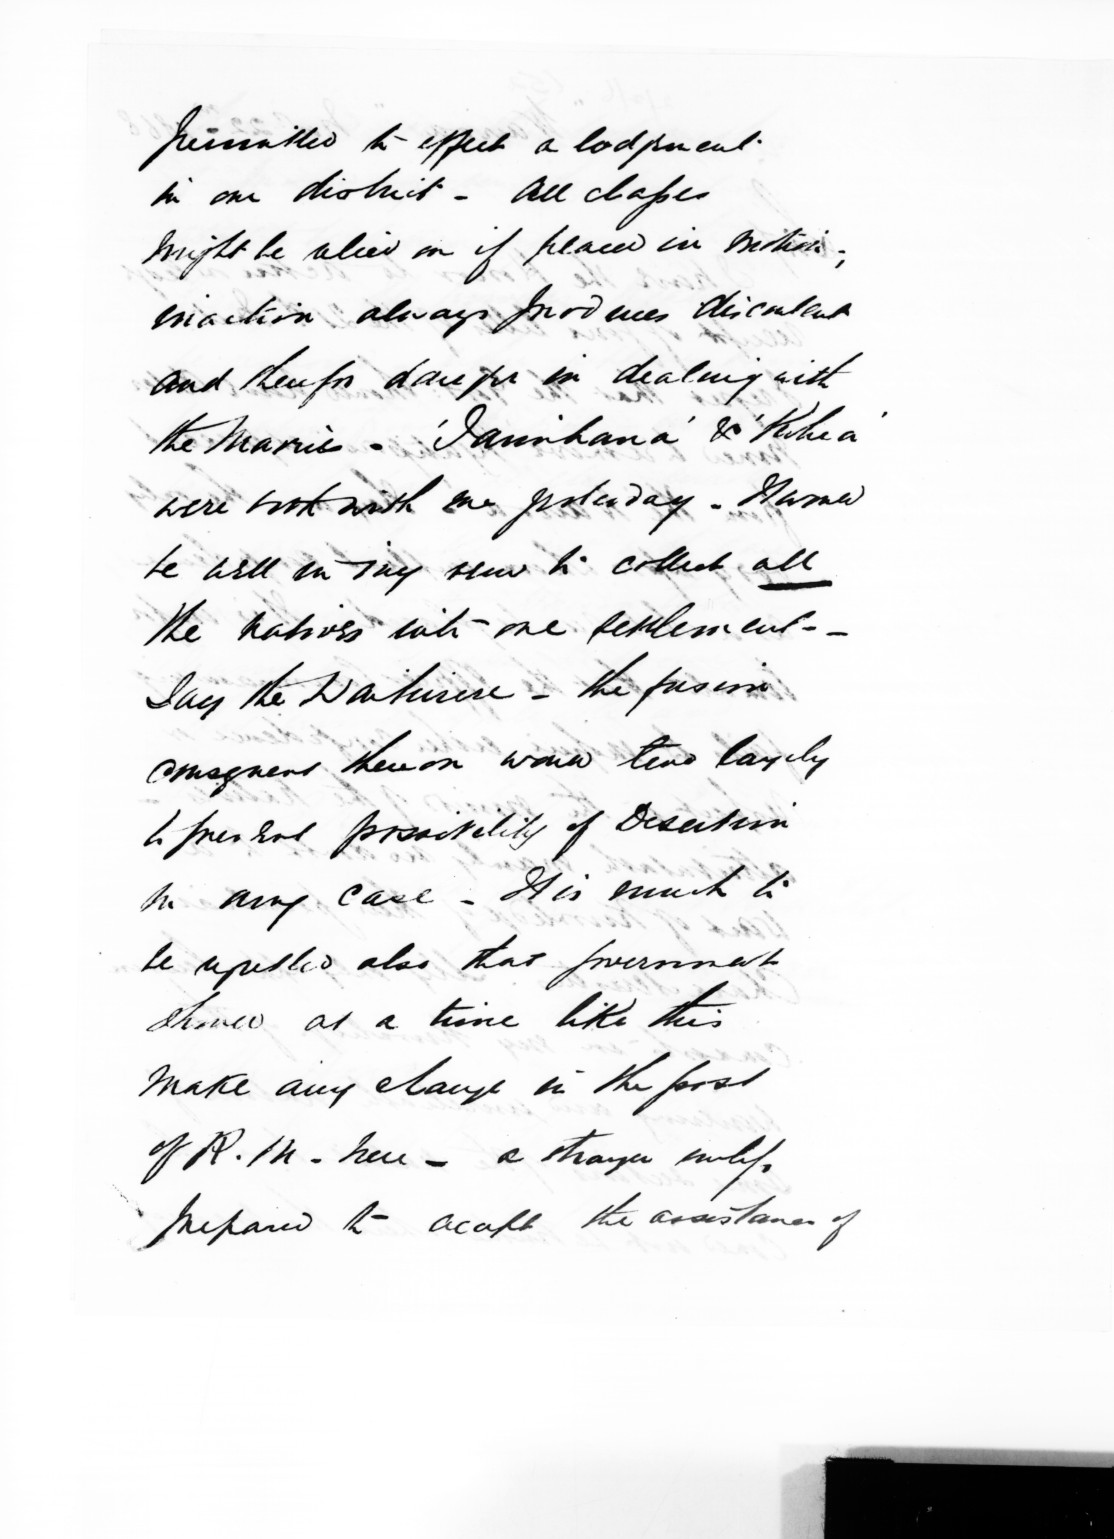 permitted to effect a lodgment
in our district - All classes
might be relied on if placed in motion;
inaction always produces discontent
and therefor danger in dealing with
the Maories - 'Tamihana' & 'Kihea'
were both with me yesterday - It would
be well in my view to collect all
the natives into one settlement -
Say the Waihirere - the fusion
consequent thereon would tend largely
to prevent possibility of Desertion
in any case - It is much to
be regretted also that government
should at a time like this
make any change in the post
of R. M. here - a stranger unless
prepared to accept the assistance of